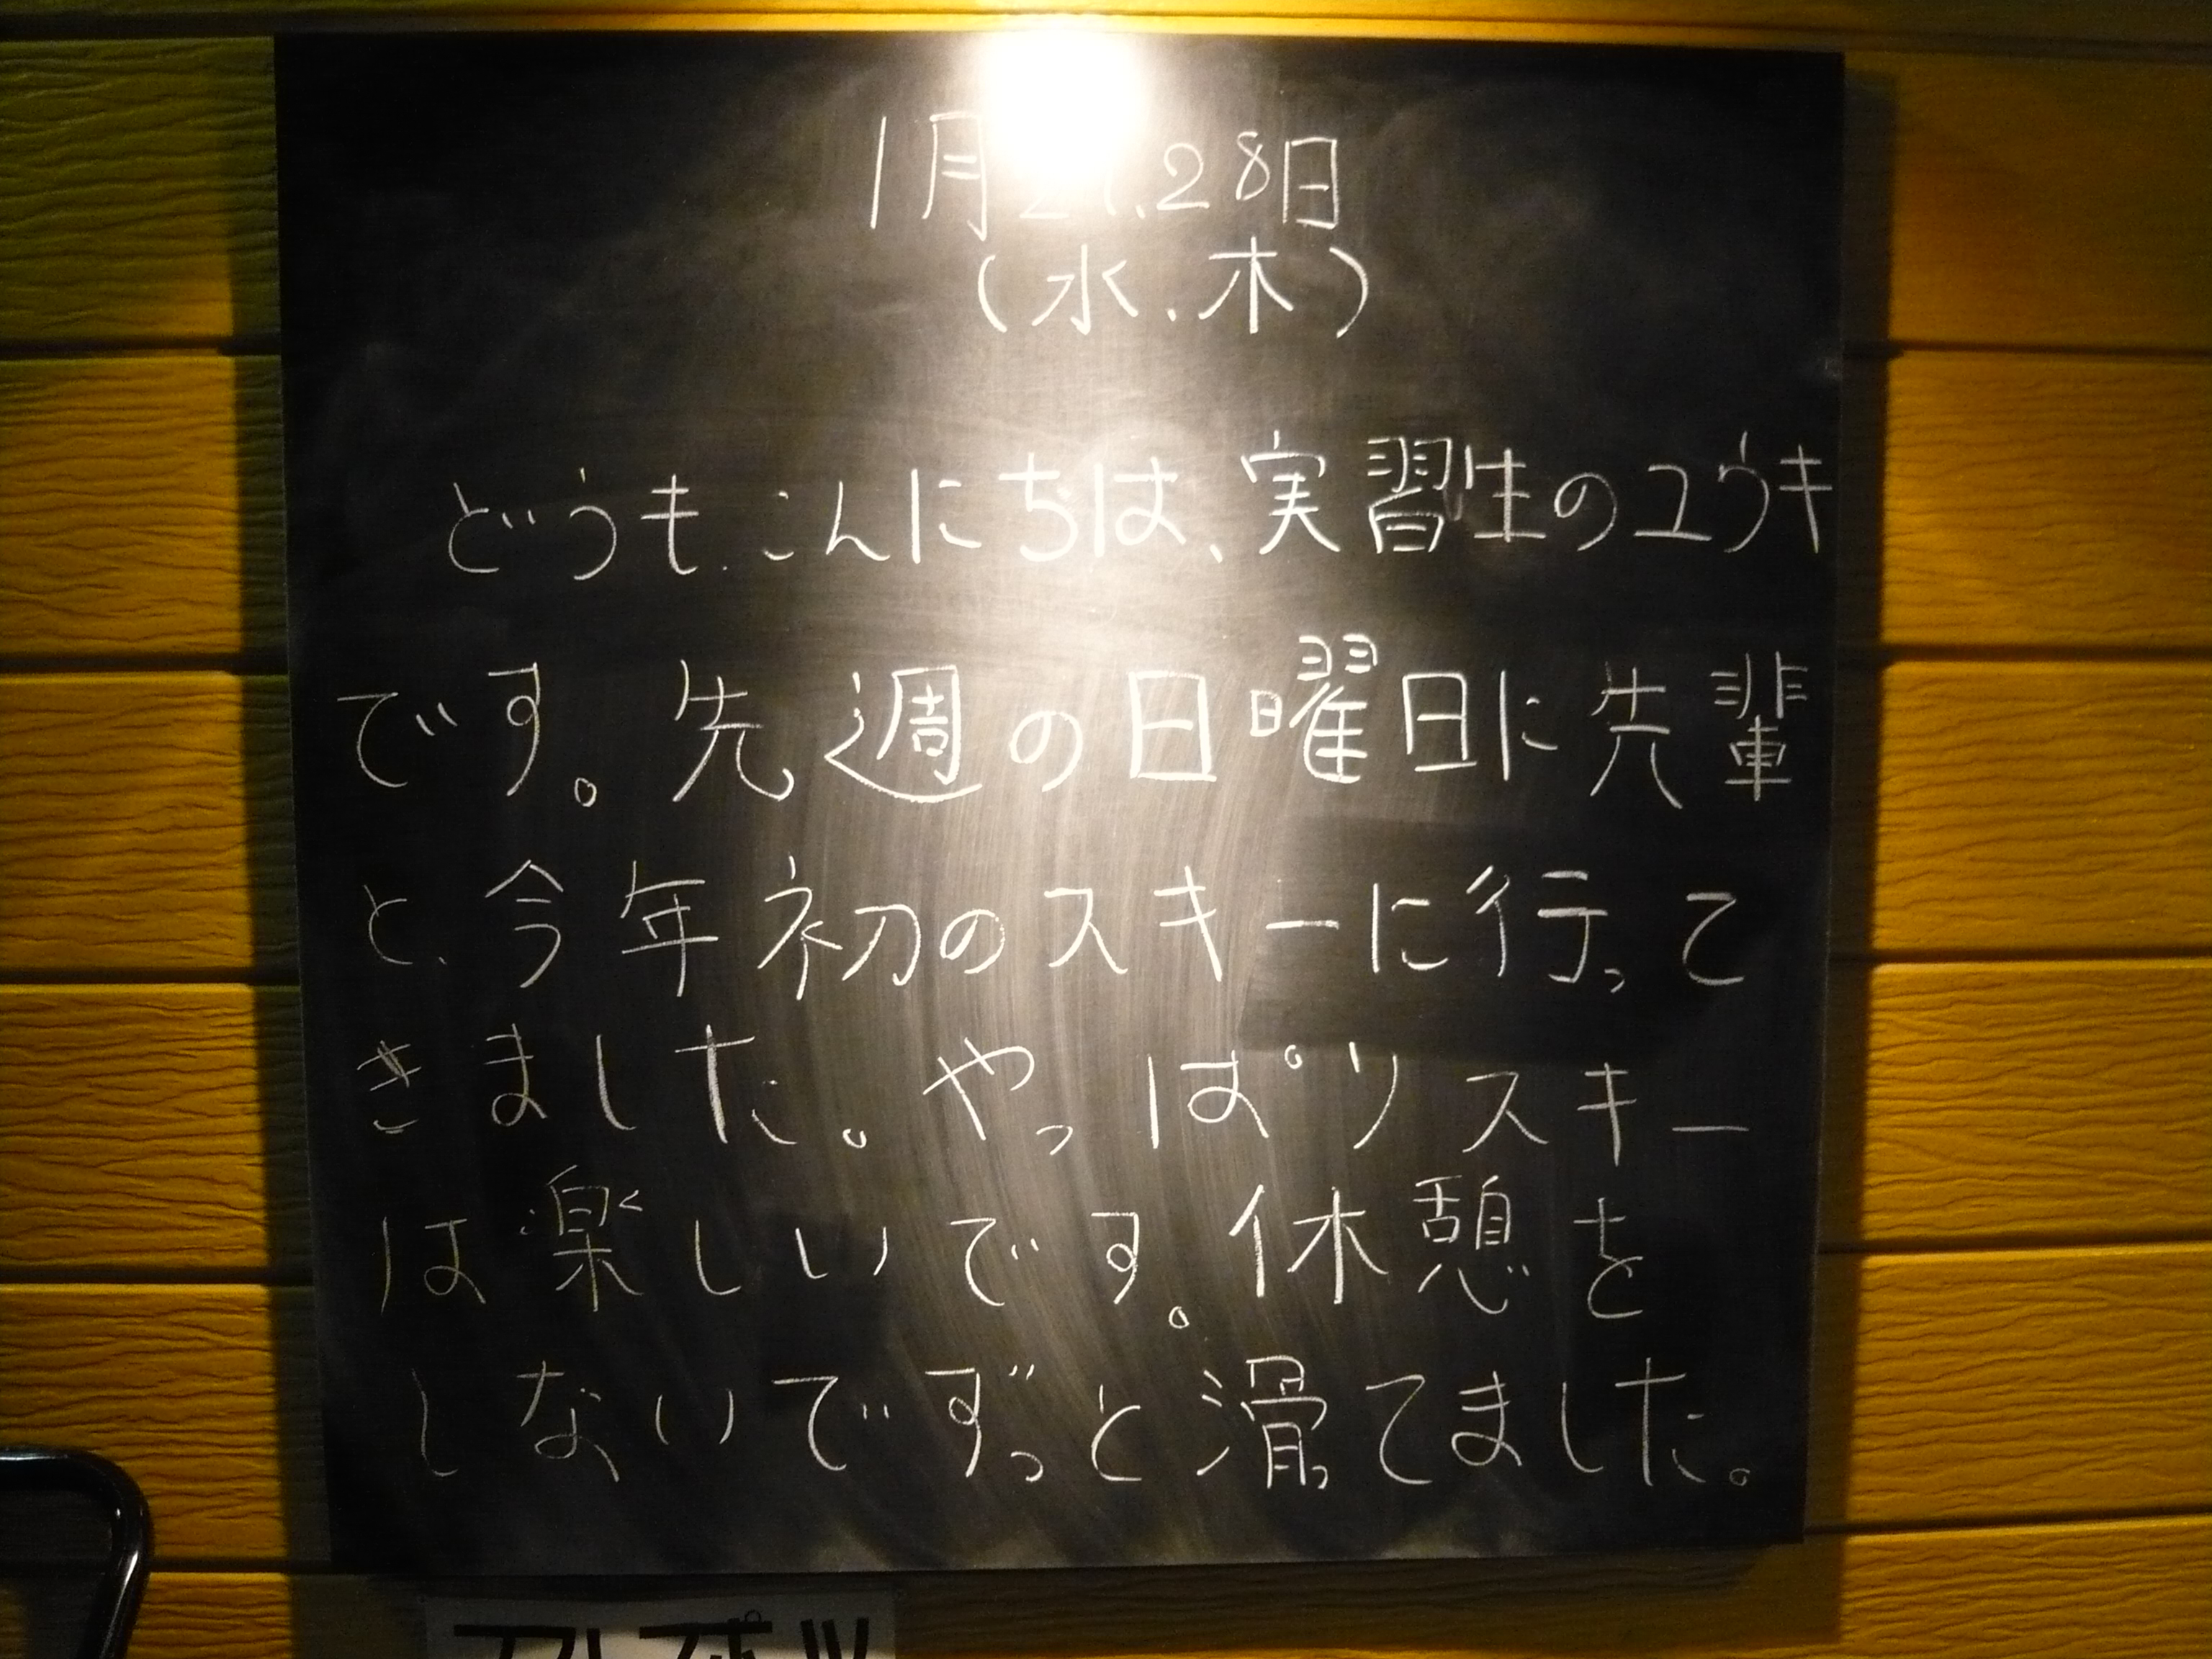 1月27.28日
(水.木)
どうも.こんにちは、実習生のユウキ
です。先週の日曜日に先輩
と、今年初のスキーに行って
きました。やっぱりスキー
は楽しいです。休憩を
しないでずっと滑てました。